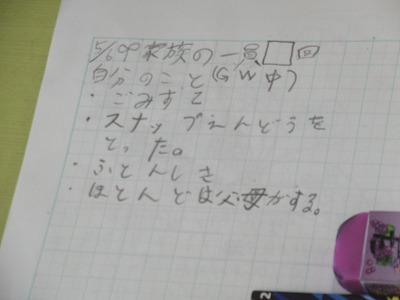 5/6の家族の一員□回
自分のこと(GW中)
・ごみすて
・スナップえんどうを
とった。
・ふとんしき
・ほとんどは父母がする。